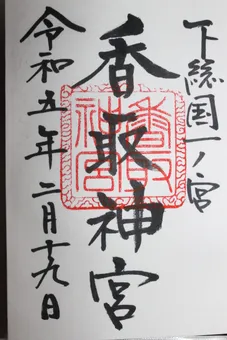 下総国一ノ宮
香取神宮
令和五年二月十九日